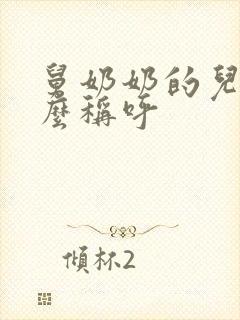 舅奶奶的兒
麼稱呼
傾杯2